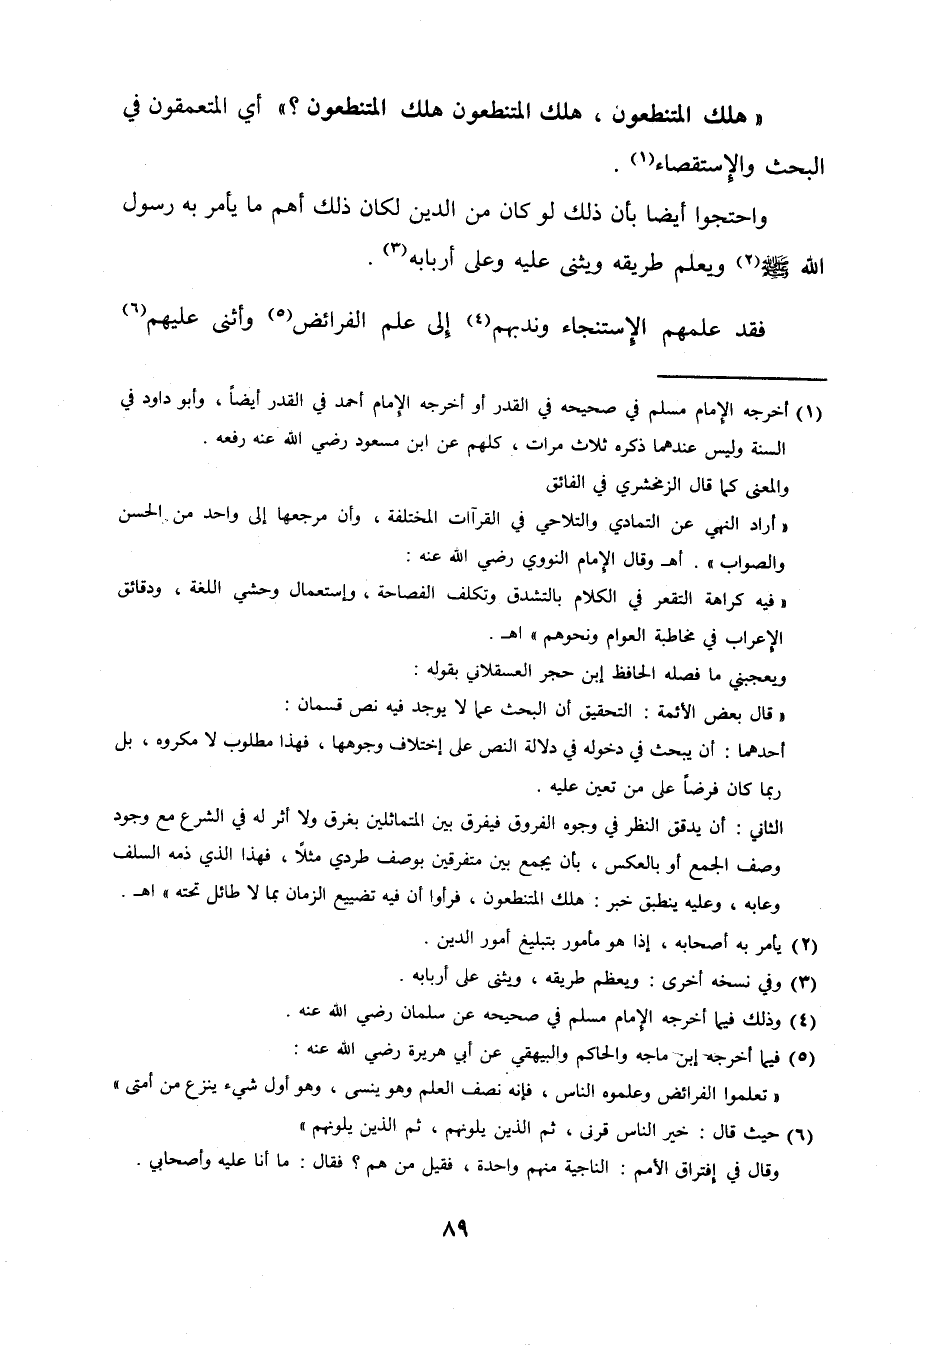 « هلك المتنطعون ، هلك المتنطعون هلك المتنطعون ؟» أي المتعمقون في
البحث والإستقصاء(١) .
واحتجوا أيضا بأن ذلك لو كان من الدين لكان ذلك أهم ما يأمر به رسول
الله ﷺ(٢) ويعلم طريقه ويثنى عليه وعلى أربابه(٣) .
فقد علمهم الإستنجاء وندبهم(٤) إلى علم الفرائض(٥) وأثنى عليهم(٦)
(١) أخرجه الإمام مسلم في صحيحه في القدر أو أخرجه الإمام أحمد في القدر أيضاً ، وأبو داود في
السنة وليس عندهما ذكره ثلاث مرات ، كلهم عن ابن مسعود رضي الله عنه رفعه .
والمعنى كما قال الزمخشري في الفائق
« أراد النهي عن التمادي والتلاحي في القرآات المختلفة ، وأن مرجعها إلى واحد من الحسن
والصواب » . أهـ وقال الإمام النووي رضي الله عنه :
« فيه كراهة التقعر في الكلام بالتشدق وتكلف الفصاحة ، وإستعمال وحشي اللغة ، ودقائق
الإعراب في مخاطبة العوام ونحوهم » اهـ .
ويعجبني ما فصله الحافظ إبن حجر العسقلاني بقوله :
« قال بعض الأئمة : التحقيق أن البحث عما لا يوجد فيه نص قسمان :
أحدهما : أن يبحث في دخوله في دلالة النص على إختلاف وجوهها ، فهذا مطلوب لا مكروه ، بل
ربما كان فرضاً على من تعين عليه .
الثاني : أن يدقق النظر في وجوه الفروق فيفرق بين المتماثلين بغرق ولا أثر له في الشرع مع وجود
وصف الجمع أو بالعكس ، بأن يجمع بين متفرقين بوصف طردي مثلاً ، فهذا الذي ذمه السلف
وعابه ، وعليه ينطبق خبر : هلك المتنطعون ، فرأوا أن فيه تضييع الزمان بما لا طائل تحته » اهـ .
(٢) يأمر به أصحابه ، إذا هو مأمور بتبليغ أمور الدين .
(٣) وفي نسخه أخرى : ويعظم طريقه ، ويثنى على أربابه .
(٤) وذلك فيما أخرجه الإمام مسلم في صحيحه عن سلمان رضي الله عنه .
(٥) فيما أخرجه إبن ماجه والحاكم والبيهقي عن أبي هريرة رضي الله عنه :
« تعلموا الفرائض وعلموه الناس ، فإنه نصف العلم وهو ينسى ، وهو أول شيء ينزع من أمتى »
(٦) حيث قال : خير الناس قرنى ، ثم الذين يلونهم ، ثم الذين يلونهم »
وقال في إفتراق الأمم : الناجية منهم واحدة ، فقيل من هم ؟ فقال : ما أنا عليه وأصحابي .
٨٩